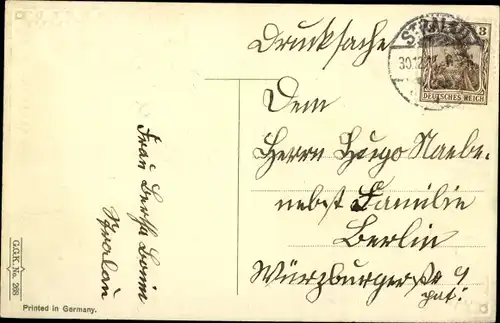 Drucksache
STRALAU
30.12.
3
DEUTSCHES REICH
Dem
Herrn Hugo Naebe.
nebst Familie
Berlin
Würzburgerstr 9
Frau Bertha
Stralau
G.G.K. No. 268
Printed in Germany.